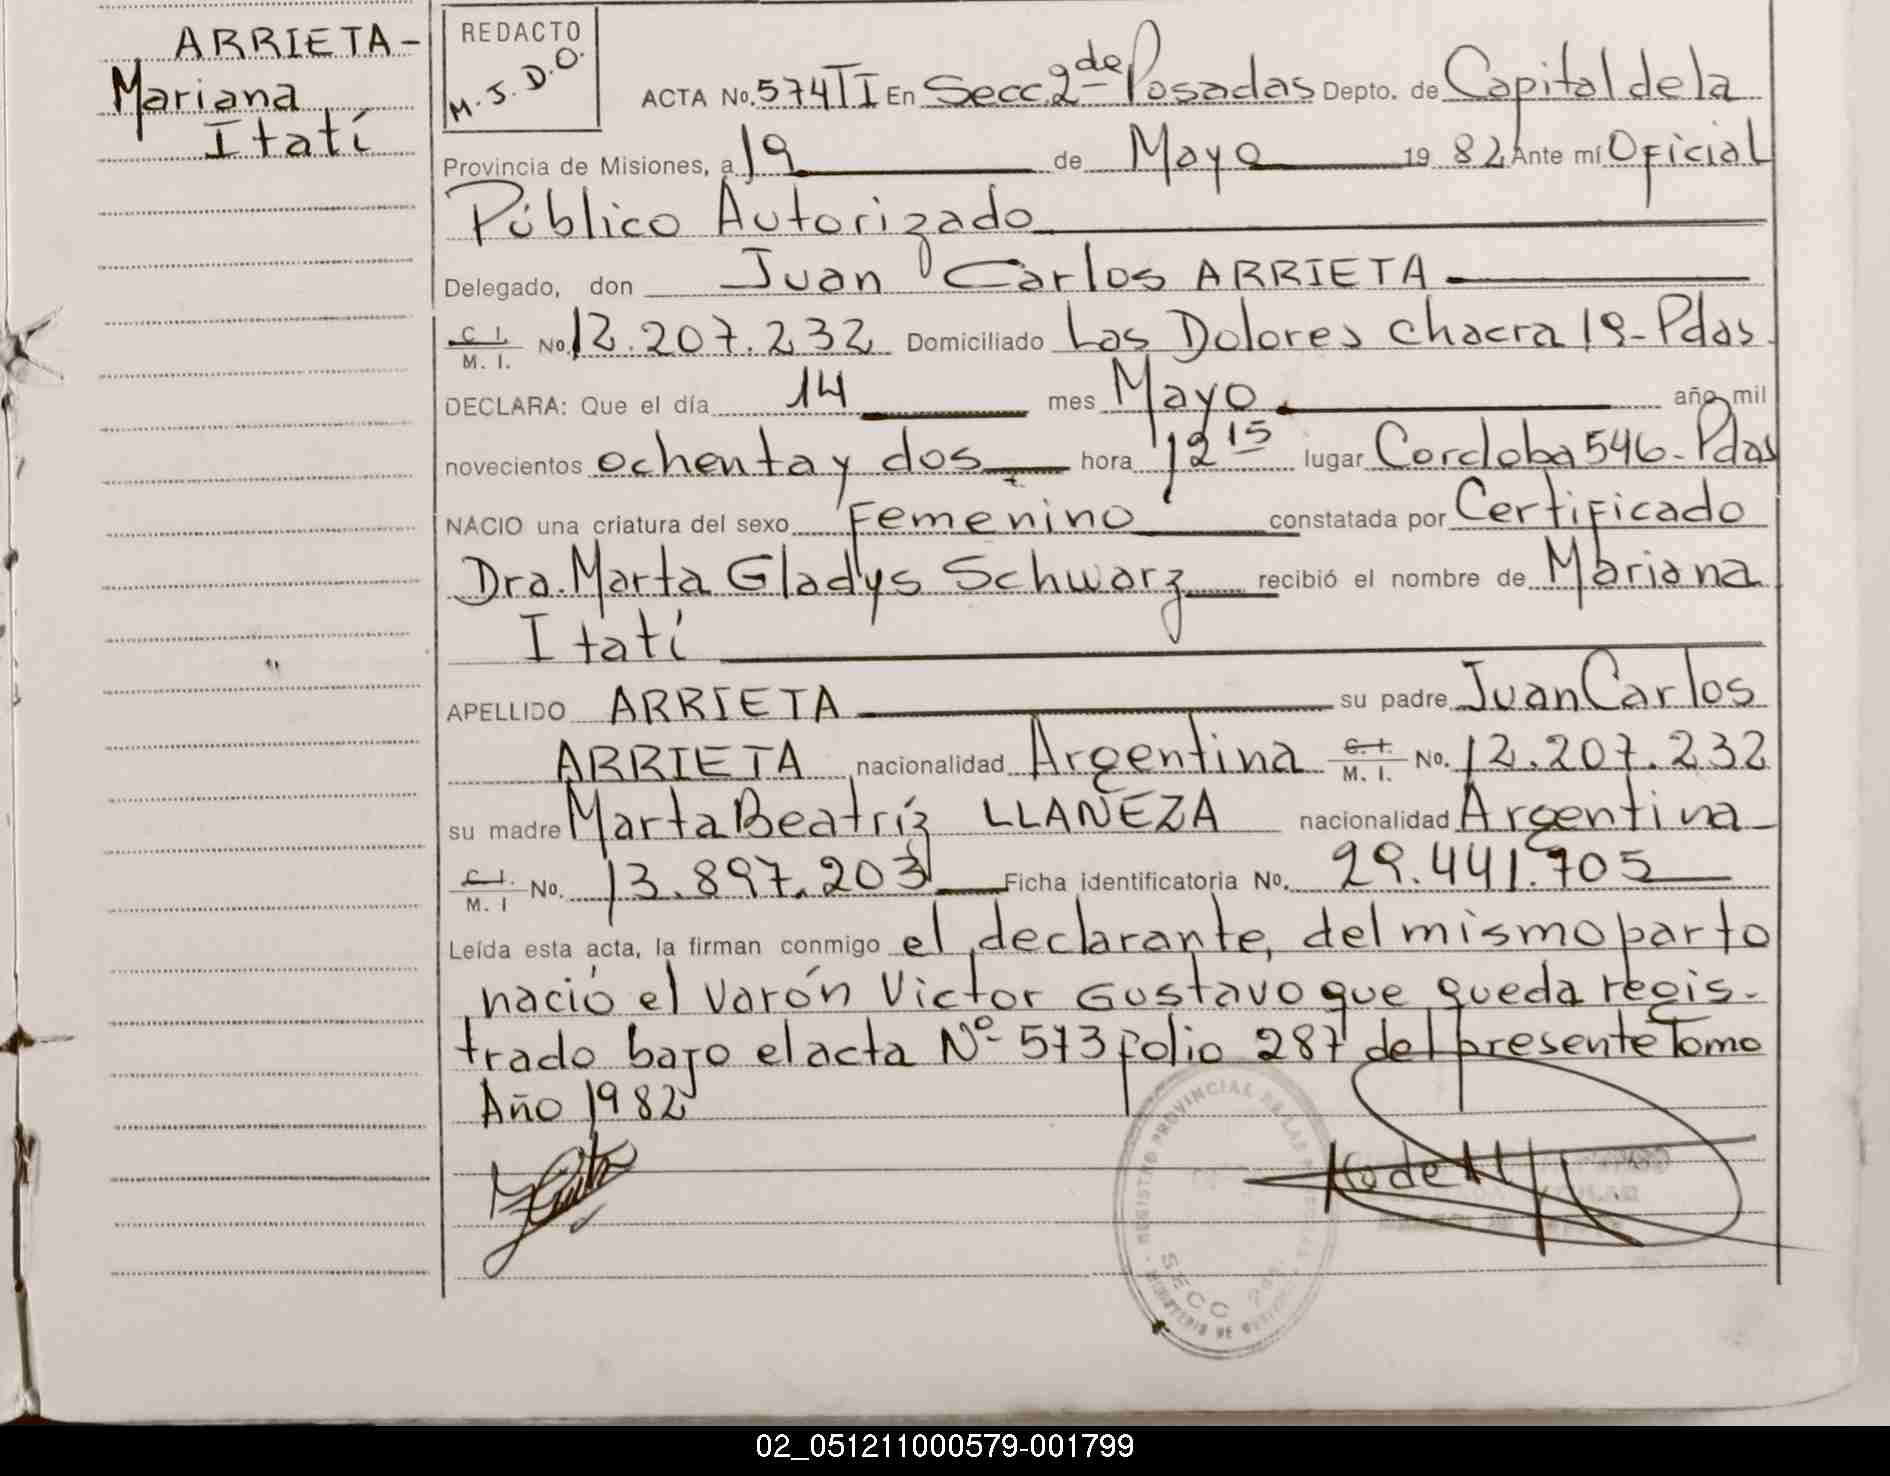 ARRIETA-
Mariana
Itatí
REDACTO
M.J.D.O.
ACTA No. 574 TI En Secc. 2da Posadas Depto. de Capital de la
Provincia de Misiones, a 19 de Mayo 19 82 Ante mí Oficial
Público Autorizado
Delegado, don Juan Carlos ARRIETA
C. I. M. I. No. 12.207.232 Domiciliado Las Dolores chacra 19-Pdas.
DECLARA: Que el día 14 mes Mayo año mil
novecientos ochenta y dos hora 12 15 lugar Cordoba 546-Pdas
NACIO una criatura del sexo Femenino constatada por Certificado
Dra. Marta Gladys Schwarz recibió el nombre de Mariana
Itatí
APELLIDO ARRIETA su padre Juan Carlos
ARRIETA nacionalidad Argentina C. I. M. I. No. 12.207.232
su madre Marta Beatríz LLANEZA nacionalidad Argentina
C. I. M. I No. 13.897.203 Ficha identificatoria No. 29.441.705
Leída esta acta, la firman conmigo el declarante, del mismo parto
nació el varón Victor Gustavo que queda regis-
trado bajo el acta Nº 573 folio 287 del presente Tomo
Año 1982
REGISTRO PROVINCIAL DE LAS
SECC 2da.
MINISTERIO DE
02_051211000579-001799